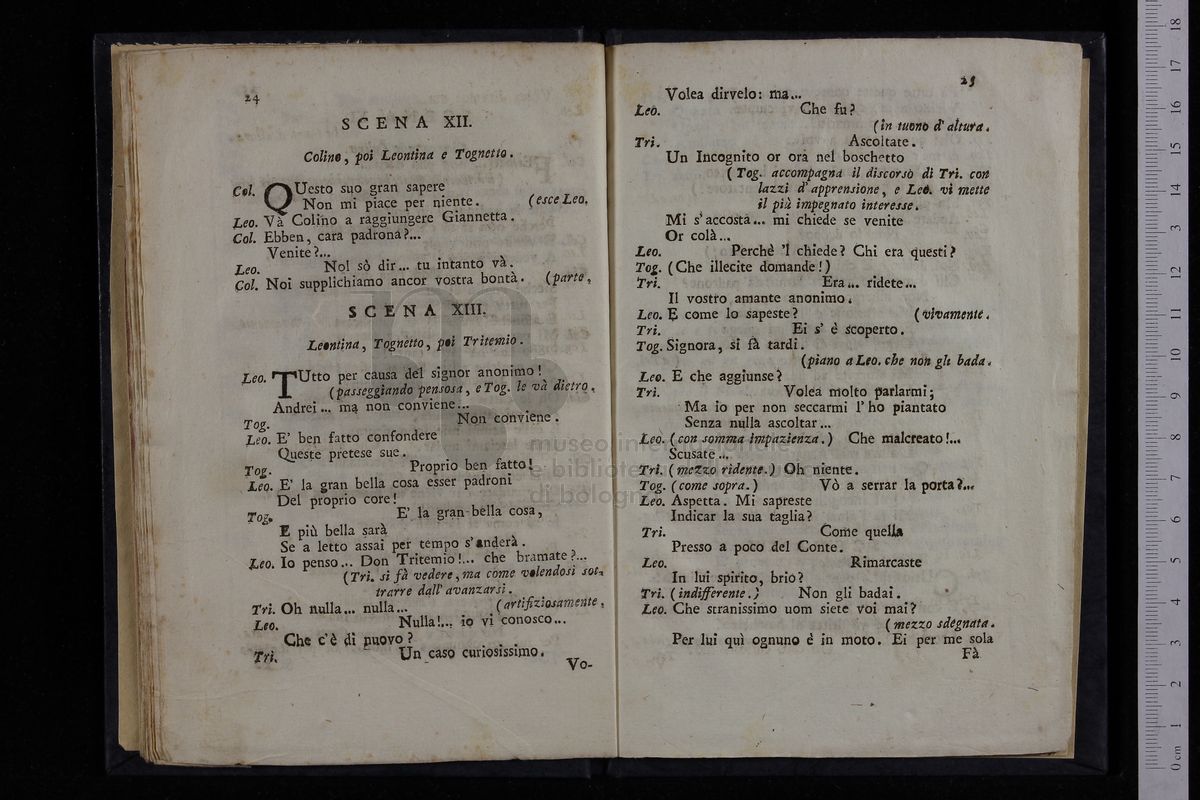 24
SCENA XII.
Colino, poi Leontina e Tognetto.
Col. QUesto suo gran sapere
Non mi piace per niente. (esce Leo.
Leo. Và Colino a raggiungere Giannetta.
Col. Ebben, cara padrona?...
Venite?...
Leo. Nol sò dir... tu intanto và.
Col. Noi supplichiamo ancor vostra bontà. (parte,
SCENA XIII.
Leontina, Tognetto, poi Tritemio.
Leo. TUtto per causa del signor anonimo!
(passeggiando pensosa, e Tog. le và dietro,
Andrei... ma non conviene...
Tog. Non conviene.
Leo. E' ben fatto confondere
Queste pretese sue.
Tog. Proprio ben fatto!
Leo. E' la gran bella cosa esser padroni
Del proprio core!
Tog. E' la gran bella cosa,
E più bella sarà
Se a letto assai per tempo s'anderà.
Leo. Io penso... Don Tritemio!... che bramate?...
(Tri. si fà vedere, ma come volendosi sot-
trarre dall' avanzarsi.
Tri. Oh nulla... nulla... (artifiziosamente,
Leo. Nulla!... io vi conosco...
Che c'è di nuovo?
Tri. Un caso curiosissimo.
Vo-
25
Volea dirvelo: ma...
Leo. Che fu?
(in tuono d'altura.
Tri. Ascoltate.
Un Incognito or ora nel boschetto
(Tog. accompagna il discorso di Tri. con
lazzi d'apprensione, e Leo. vi mette
il più impegnato interesse.
Mi s'accosta... mi chiede se venite
Or colà...
Leo. Perchè 'l chiede? Chi era questi?
Tog. (Che illecite domande!)
Tri. Era... ridete...
Il vostro amante anonimo.
Leo. E come lo sapeste? (vivamente.
Tri. Ei s' è scoperto.
Tog. Signora, si fà tardi.
(piano a Leo. che non gli bada.
Leo. E che aggiunse?
Tri. Volea molto parlarmi;
Ma io per non seccarmi l'ho piantato
Senza nulla ascoltar...
Leo. (con somma impazienza.) Che malcreato!...
Scusate...
Tri. (mezzo ridente.) Oh niente.
Tog. (come sopra.) Vò a serrar la porta?...
Leo. Aspetta. Mi sapreste
Indicar la sua taglia?
Tri. Come quella
Presso a poco del Conte.
Leo. Rimarcaste
In lui spirito, brio?
Tri. (indifferente.) Non gli badai.
Leo. Che stranissimo uom siete voi mai?
(mezzo sdegnata.
Per lui quì ognuno è in moto. Ei per me sola
Fà